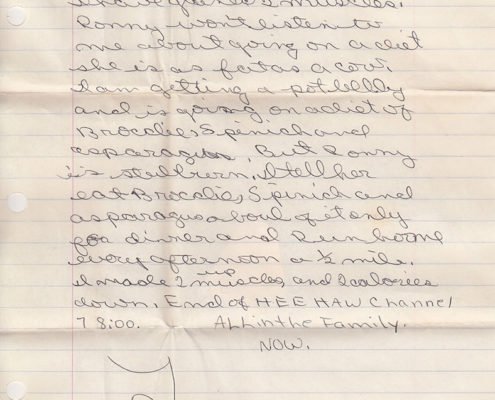 muscles.
Ronny won't listen to
me about going on a diet
she is as fat as a cow.
I am getting a pot belly
and is going on a diet of
Brocolie, Spinich and
asparagus. But Ronny
is stubbern. I tell her
eat Brocolie, Spinich and
asparagus a boul of it only
for dinner and I run home
every afternoon a ½ mile.
I made 2 up muscles, and 2 calories
down. End of HEE HAW Channel
7 8:00. All in the Family.
NOW.